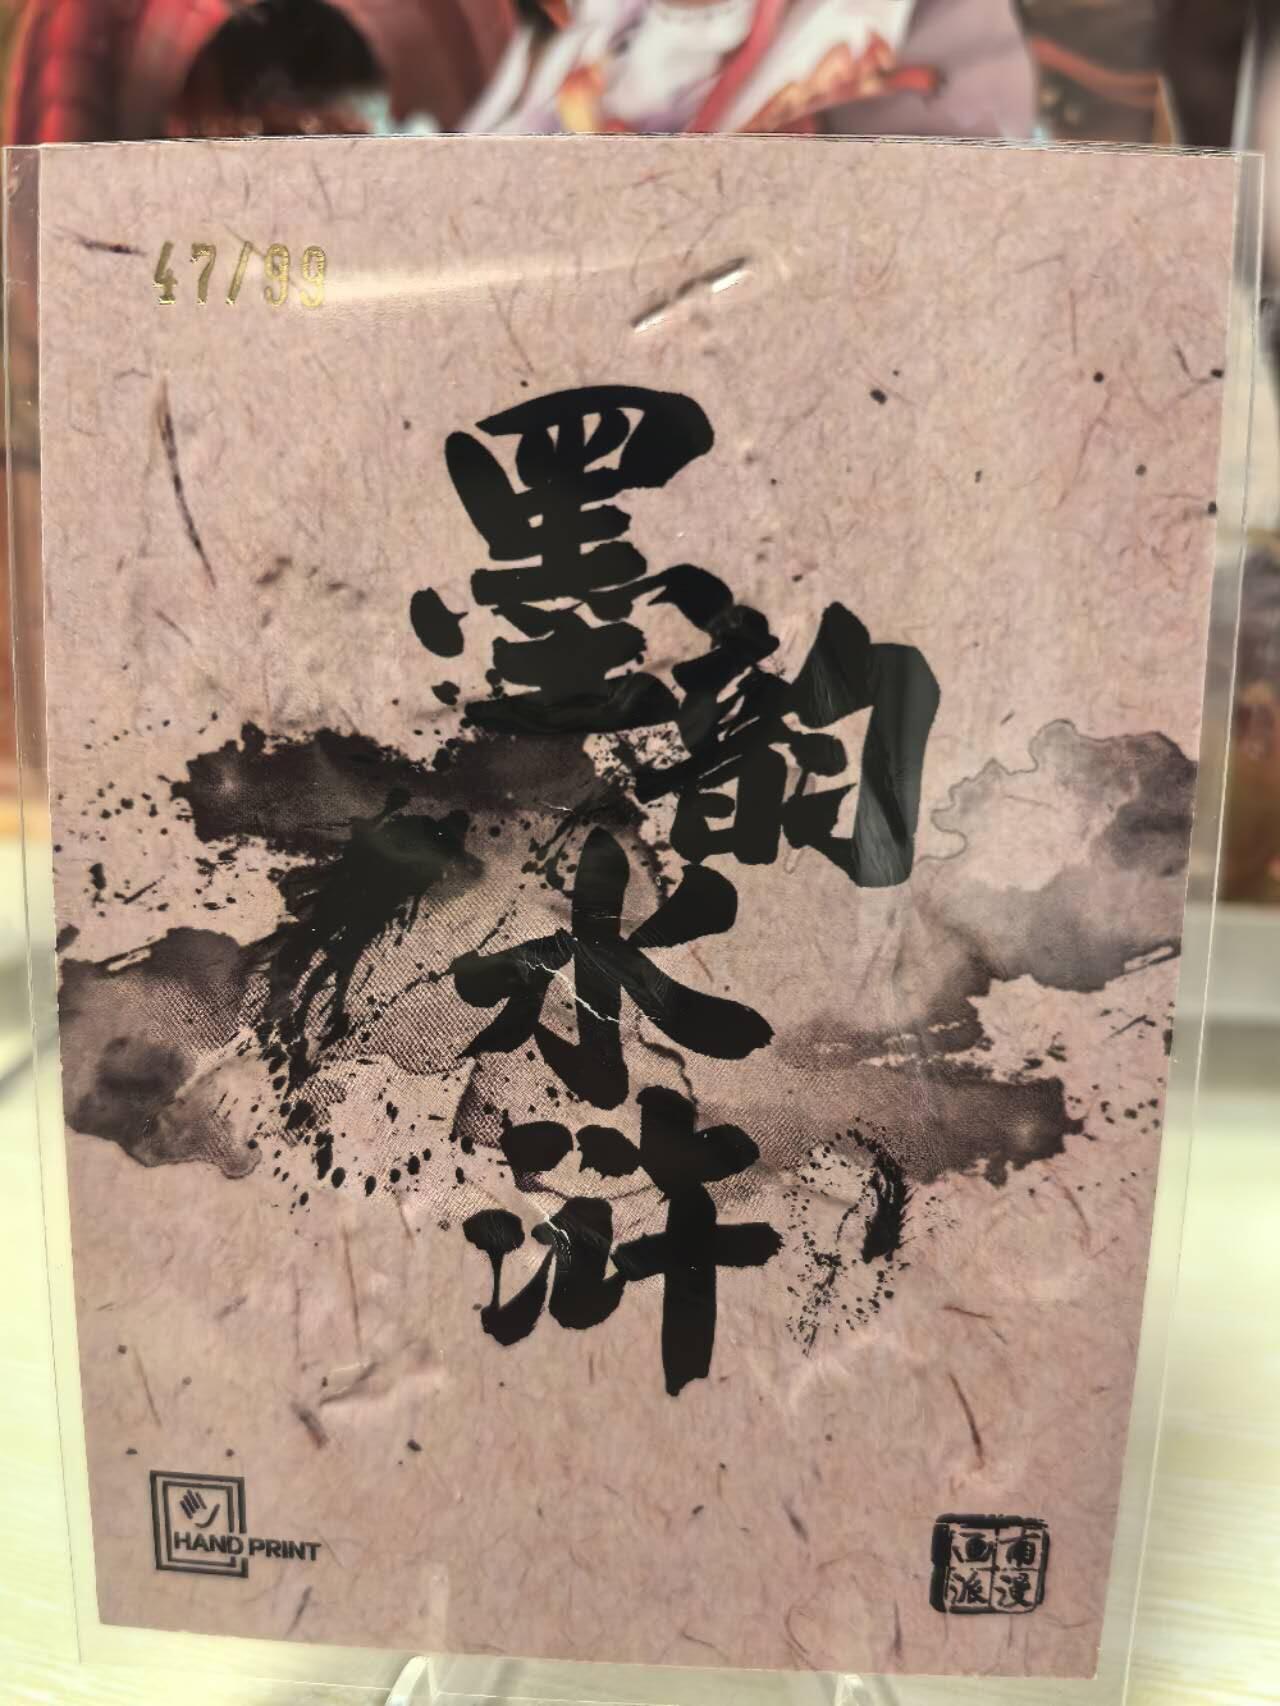 47/99
墨韵
水浒
HAND PRINT
南漫
画派